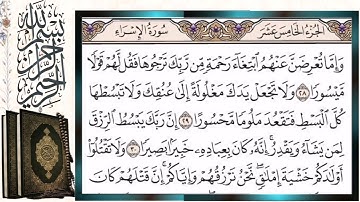 الجزء الخامس عشر
سورة الإسراء
وَإِمَّا تُعْرِضَنَّ عَنْهُمُ ابْتِغَاءَ رَحْمَةٍ مِنْ رَبِّكَ تَرْجُوهَا فَقُلْ لَهُمْ قَوْلًا
مَيْسُورًا ٢٨ وَلَا تَجْعَلْ يَدَكَ مَغْلُولَةً إِلَى عُنُقِكَ وَلَا تَبْسُطْهَا
كُلَّ الْبَسْطِ فَتَقْعُدَ مَلُومًا مَحْسُورًا ٢٩ إِنَّ رَبَّكَ يَبْسُطُ الرِّزْقَ
لِمَنْ يَشَاءُ وَيَقْدِرُ إِنَّهُ كَانَ بِعِبَادِهِ خَبِيرًا بَصِيرًا ٣٠ وَلَا تَقْتُلُوا
أَوْلَادَكُمْ خَشْيَةَ إِمْلَاقٍ نَحْنُ نَرْزُقُهُمْ وَإِيَّاكُمْ إِنَّ قَتْلَهُمْ كَانَ
بسم الله الرحمن الرحيم